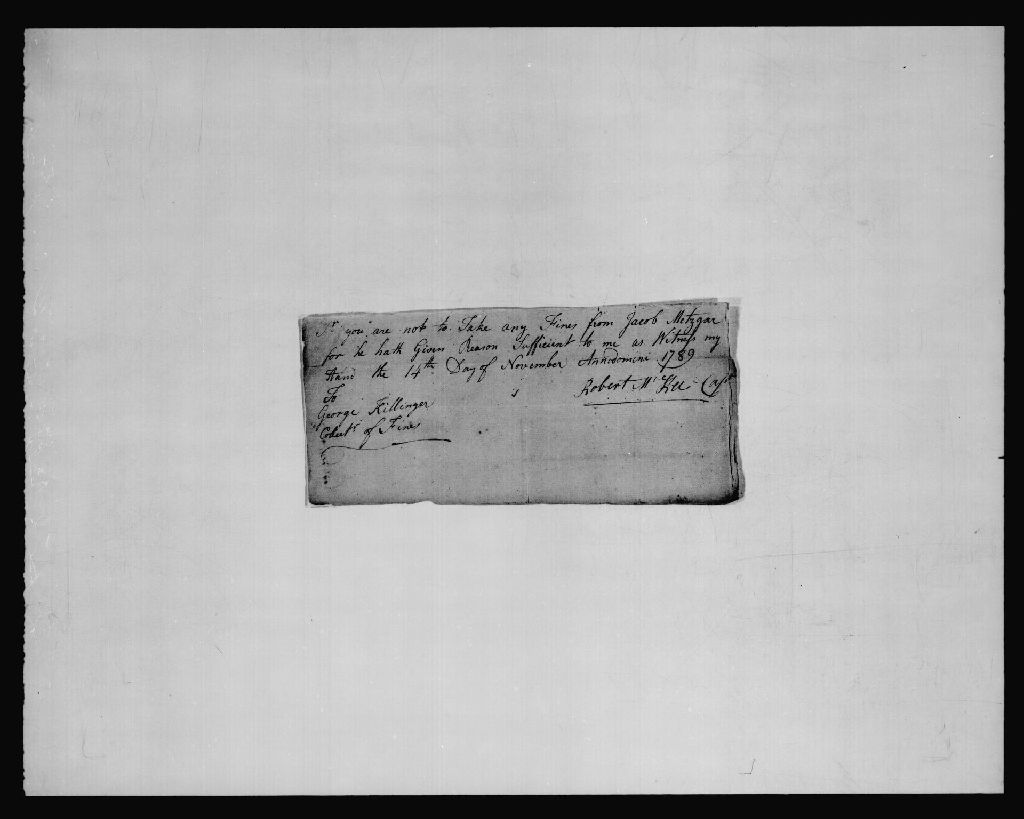 Sr you are not to Take any Fines from Jacob Metzgar
for he hath Given Reason Sufficient to me as Witness my
Hand the 14th Day of November Annodomini 1789
Robert McKee Capt
To
George Killinger
Colectr of Fine